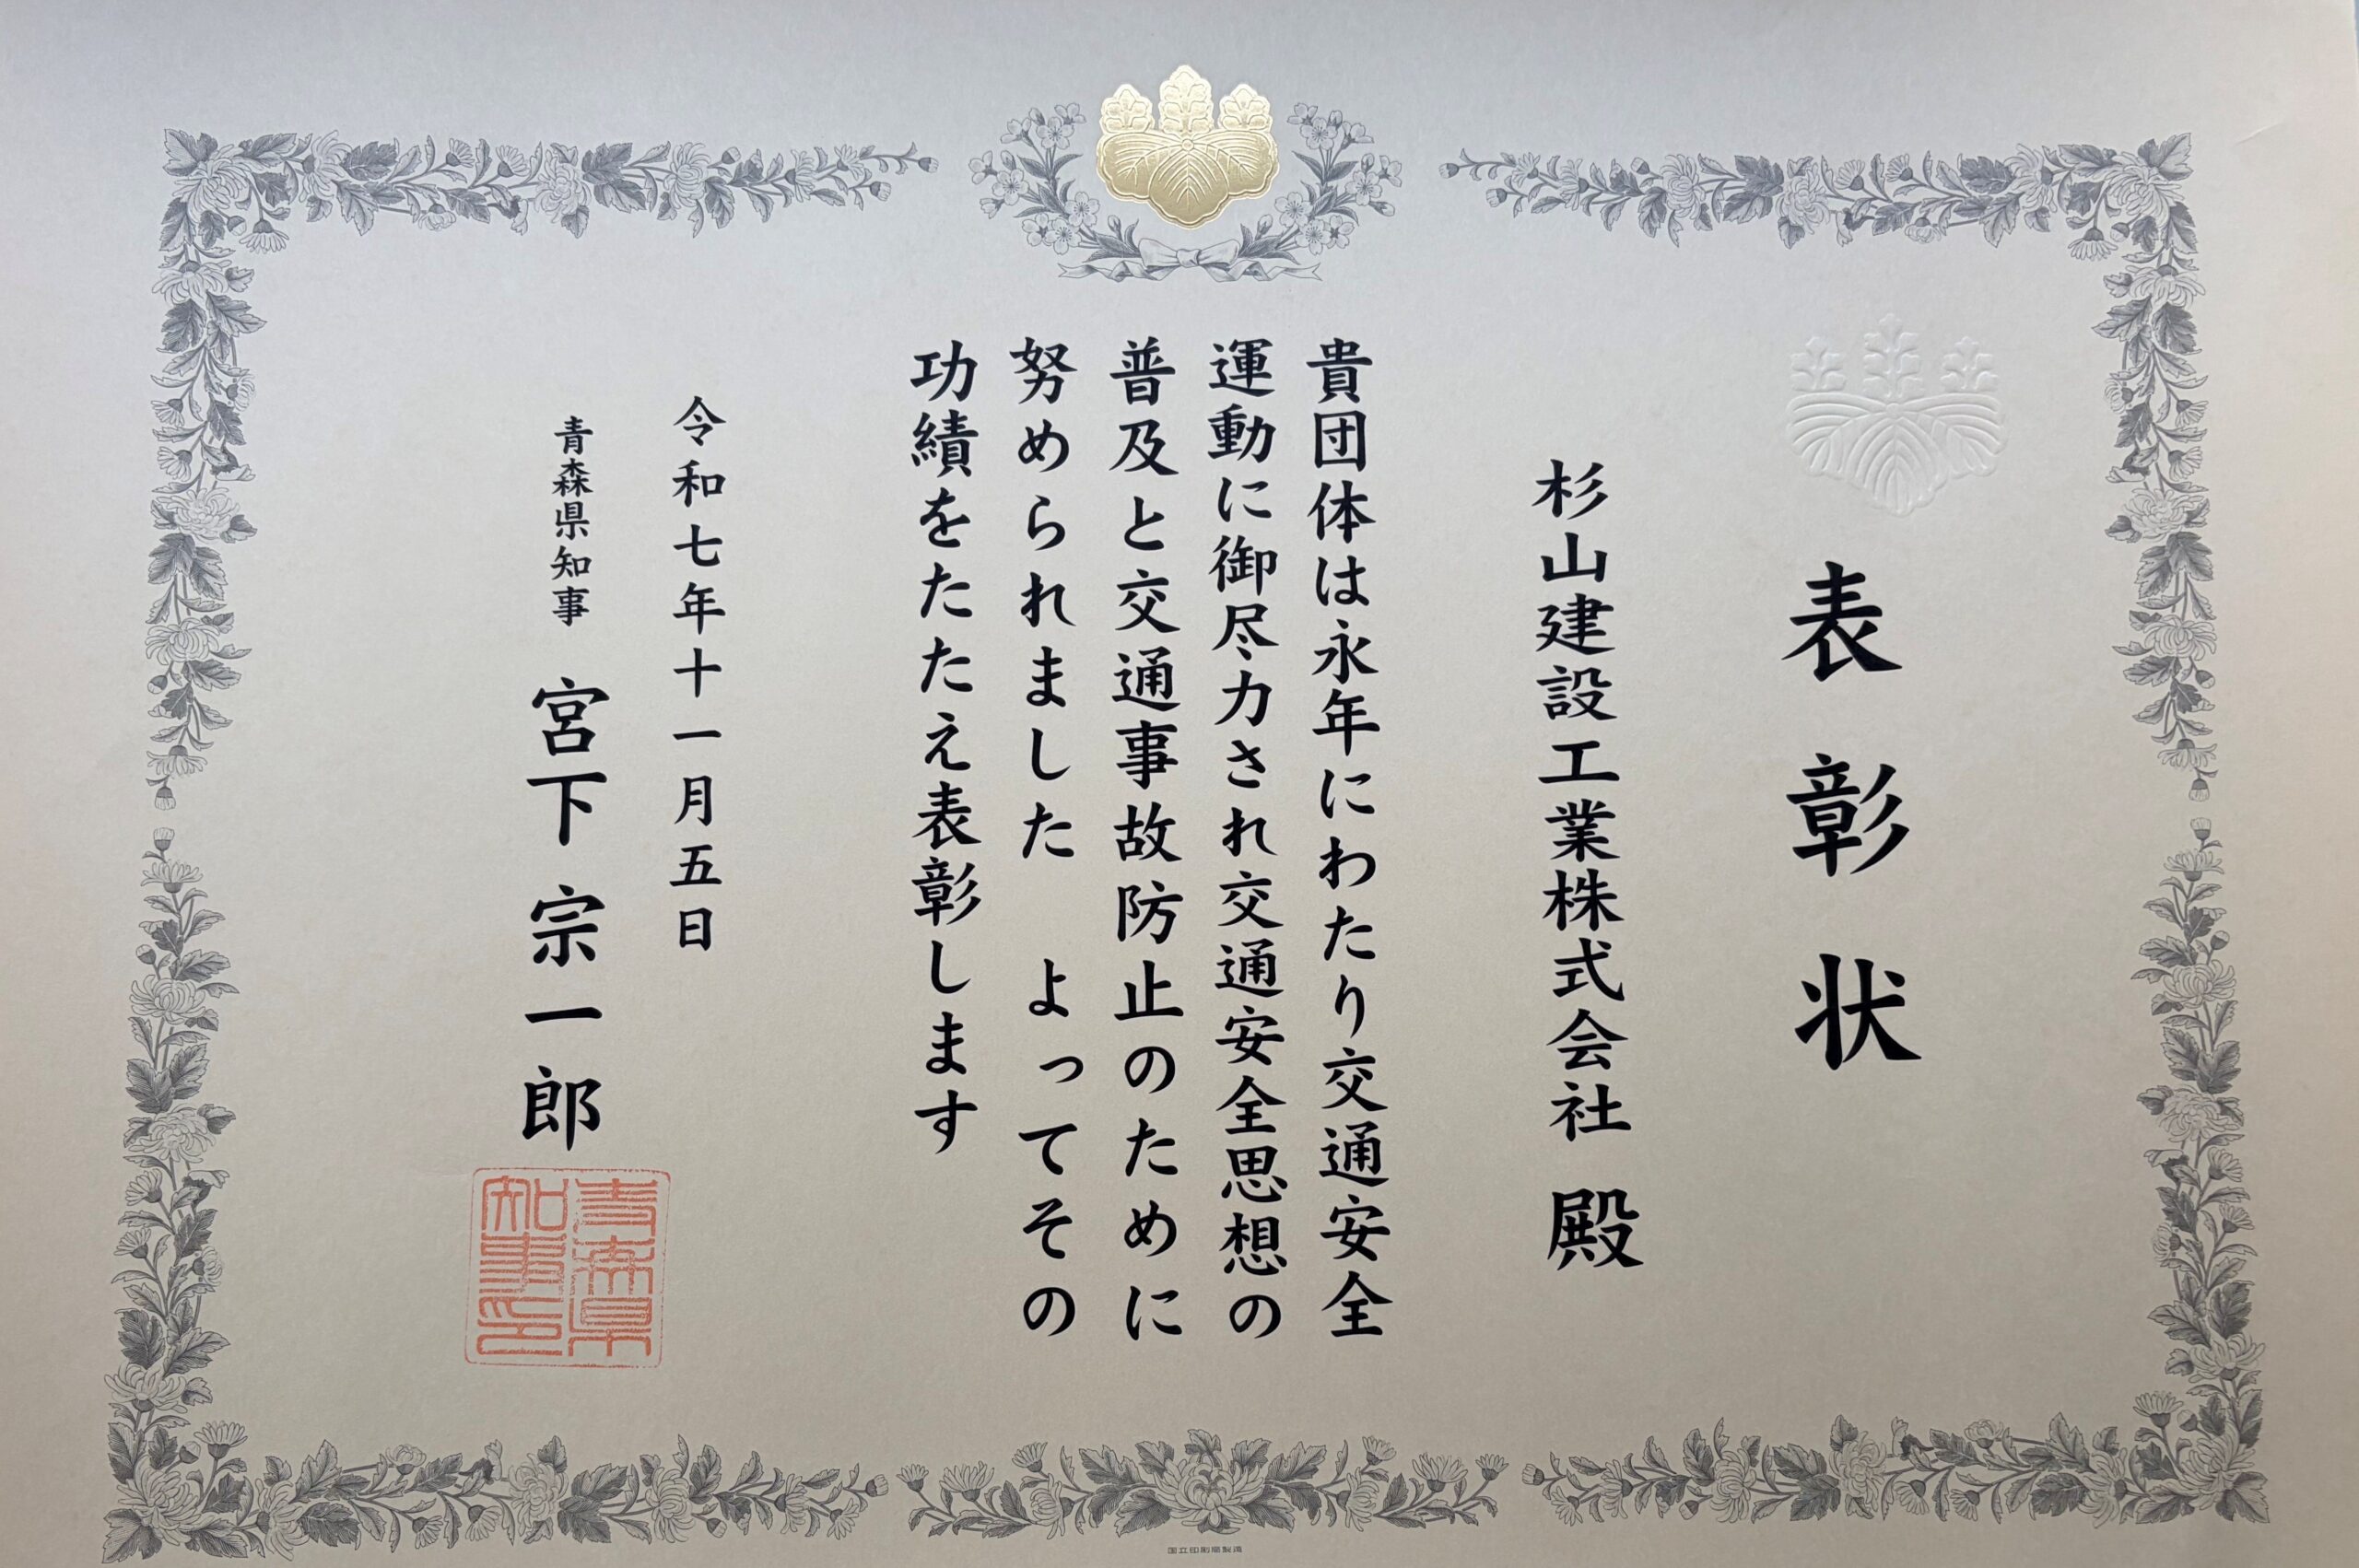 表彰状
杉山建設工業株式会社 殿
貴団体は永年にわたり交通安全
運動に御尽力され交通安全思想の
普及と交通事故防止のために
努められました よってその
功績をたたえ表彰します
令和七年十一月五日
青森県知事 宮下宗一郎
青森県
知事印
国立印刷局製造